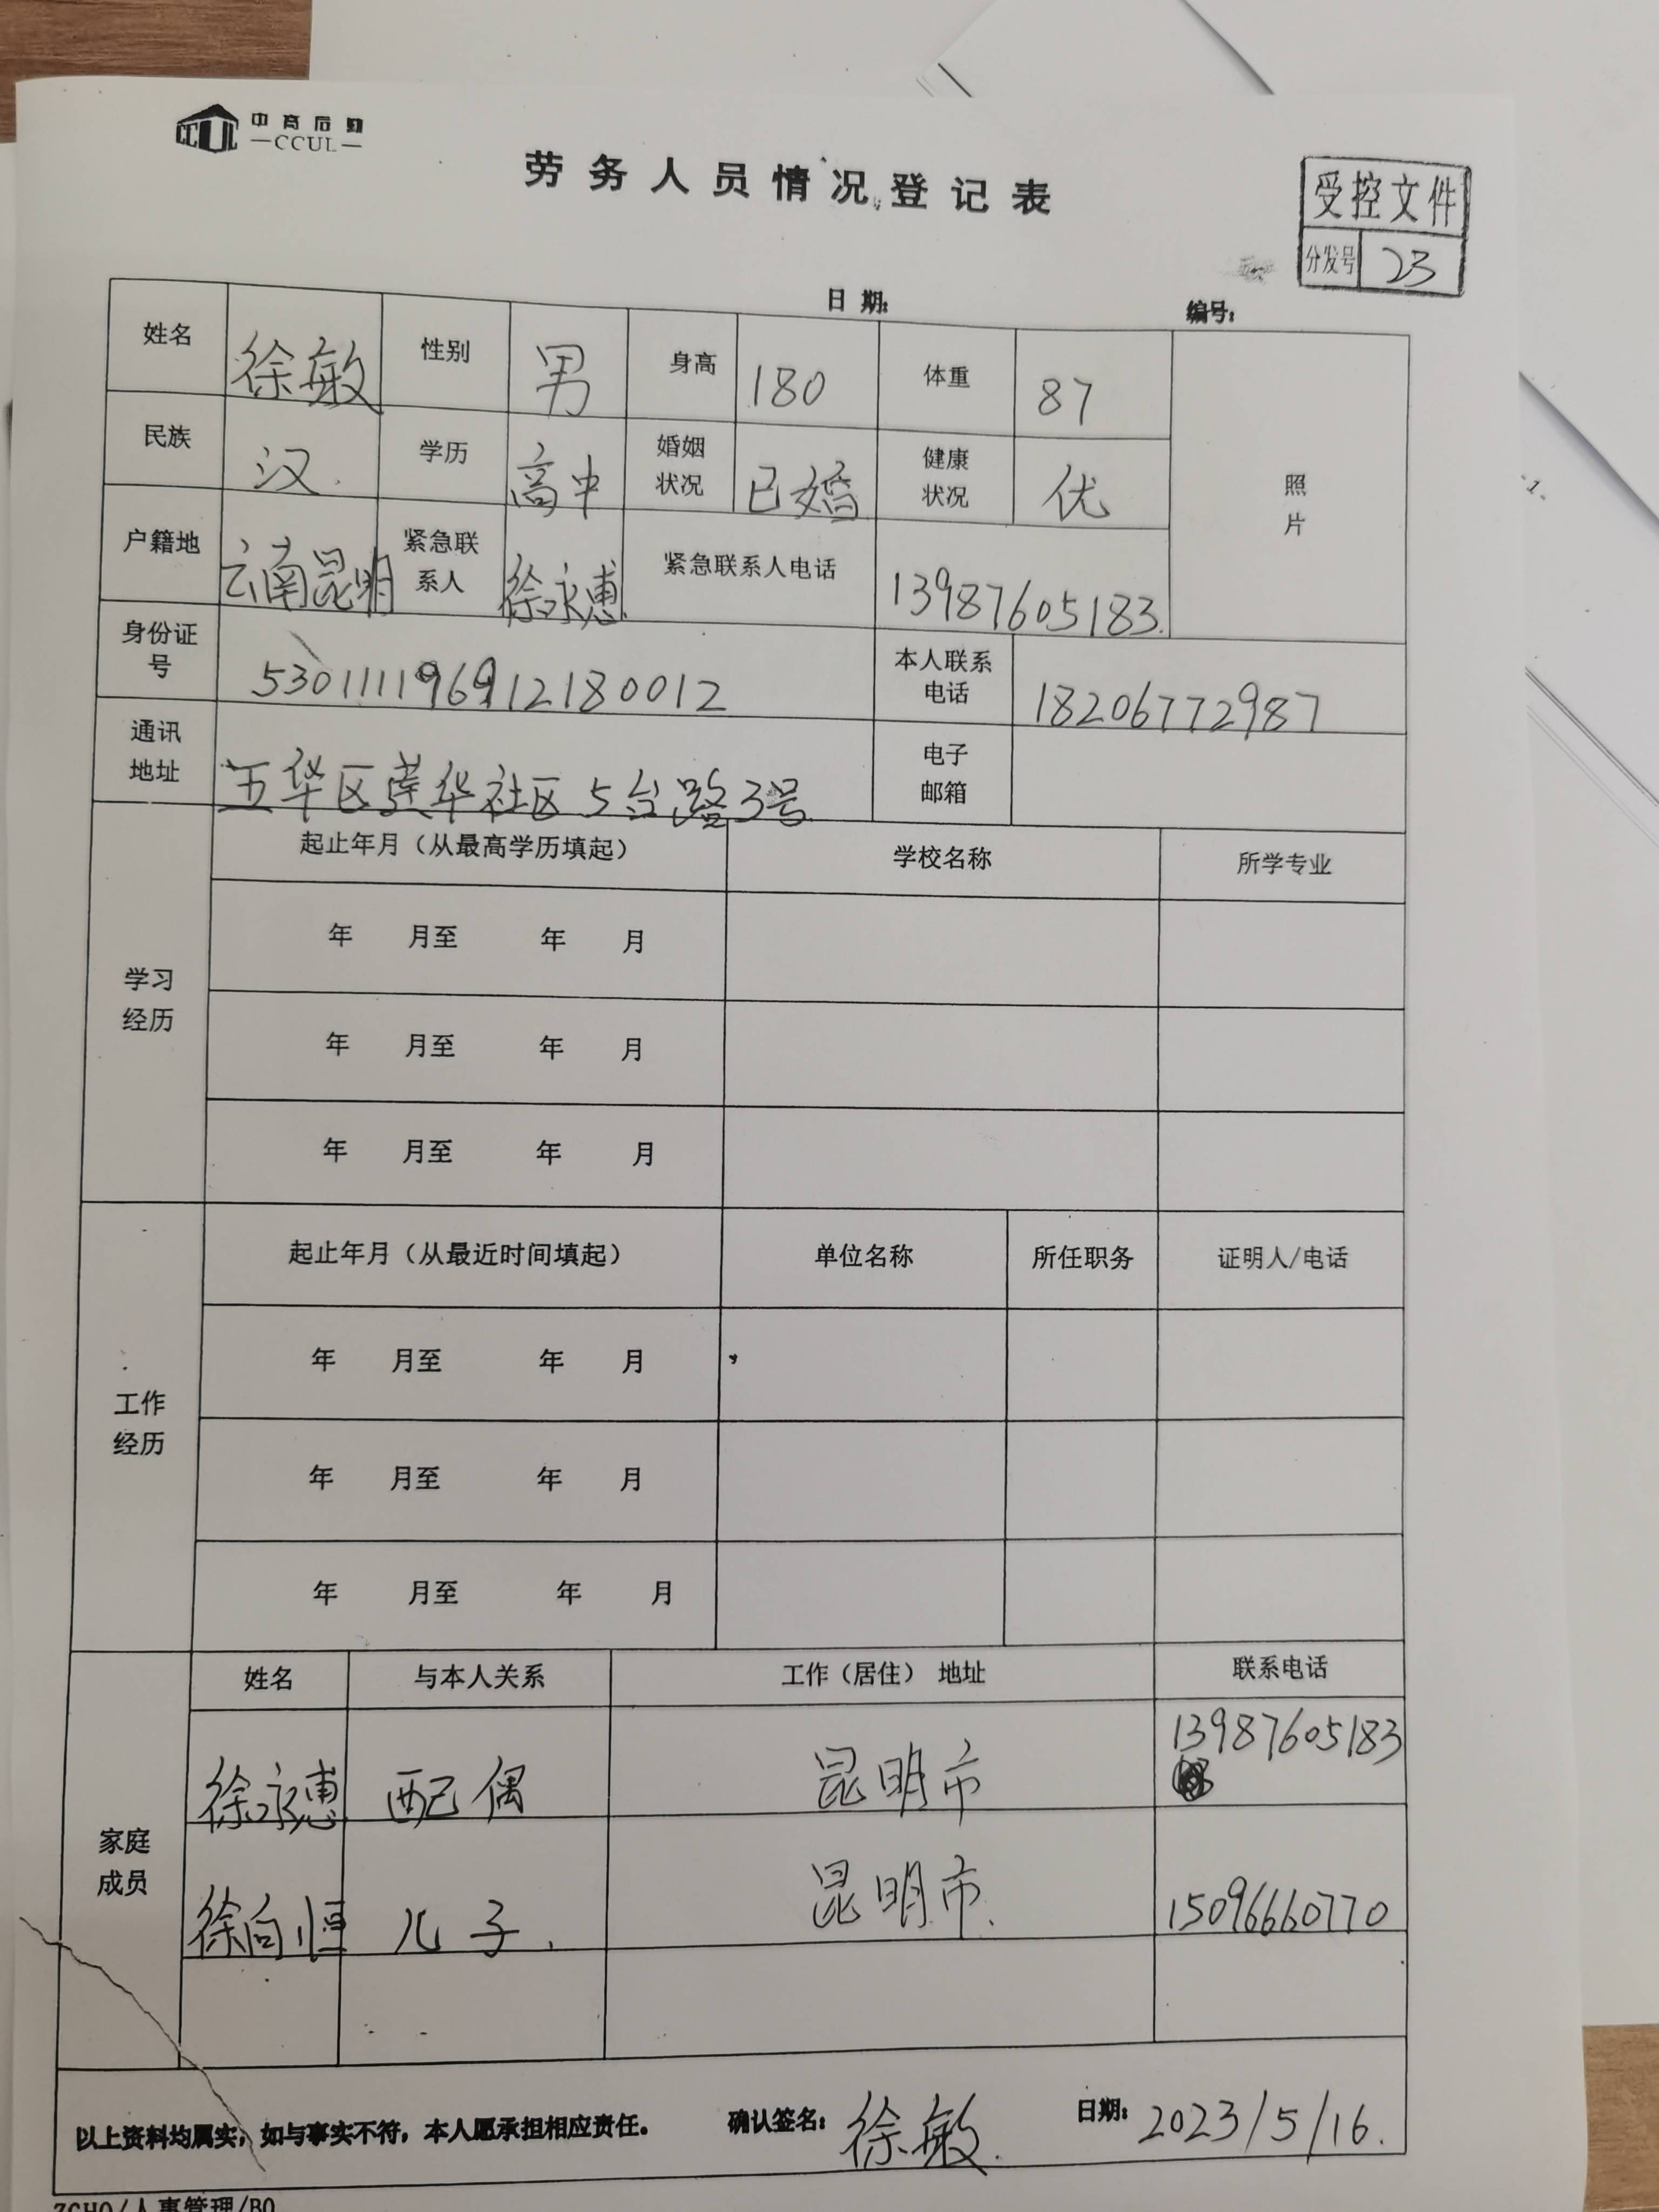 中商后勤
CCUL
—CCUL—
劳务人员情况登记表
受控文件
分发号 23
日期: 编号:
姓名 徐敏 性别 男 身高 180 体重 87 照片
民族 汉. 学历 高中 婚姻状况 已婚 健康状况 优
户籍地 云南昆明 紧急联系人 徐永惠 紧急联系人电话 13987605183.
身份证号 530111196912180012 本人联系电话 18206772987
通讯地址 五华区莲华社区5台路3号 电子邮箱
学习经历 起止年月(从最高学历填起) 学校名称 所学专业
年 月至 年 月
年 月至 年 月
年 月至 年 月
工作经历 起止年月(从最近时间填起) 单位名称 所任职务 证明人/电话
年 月至 年 月
年 月至 年 月
年 月至 年 月
家庭成员 姓名 与本人关系 工作(居住) 地址 联系电话
徐永惠 配偶 昆明市 13987605183
徐向恒 儿子. 昆明市. 15096660770
以上资料均属实,如与事实不符,本人愿承担相应责任。 确认签名: 徐敏. 日期: 2023/5/16.
ZGHQ/人事管理/B0